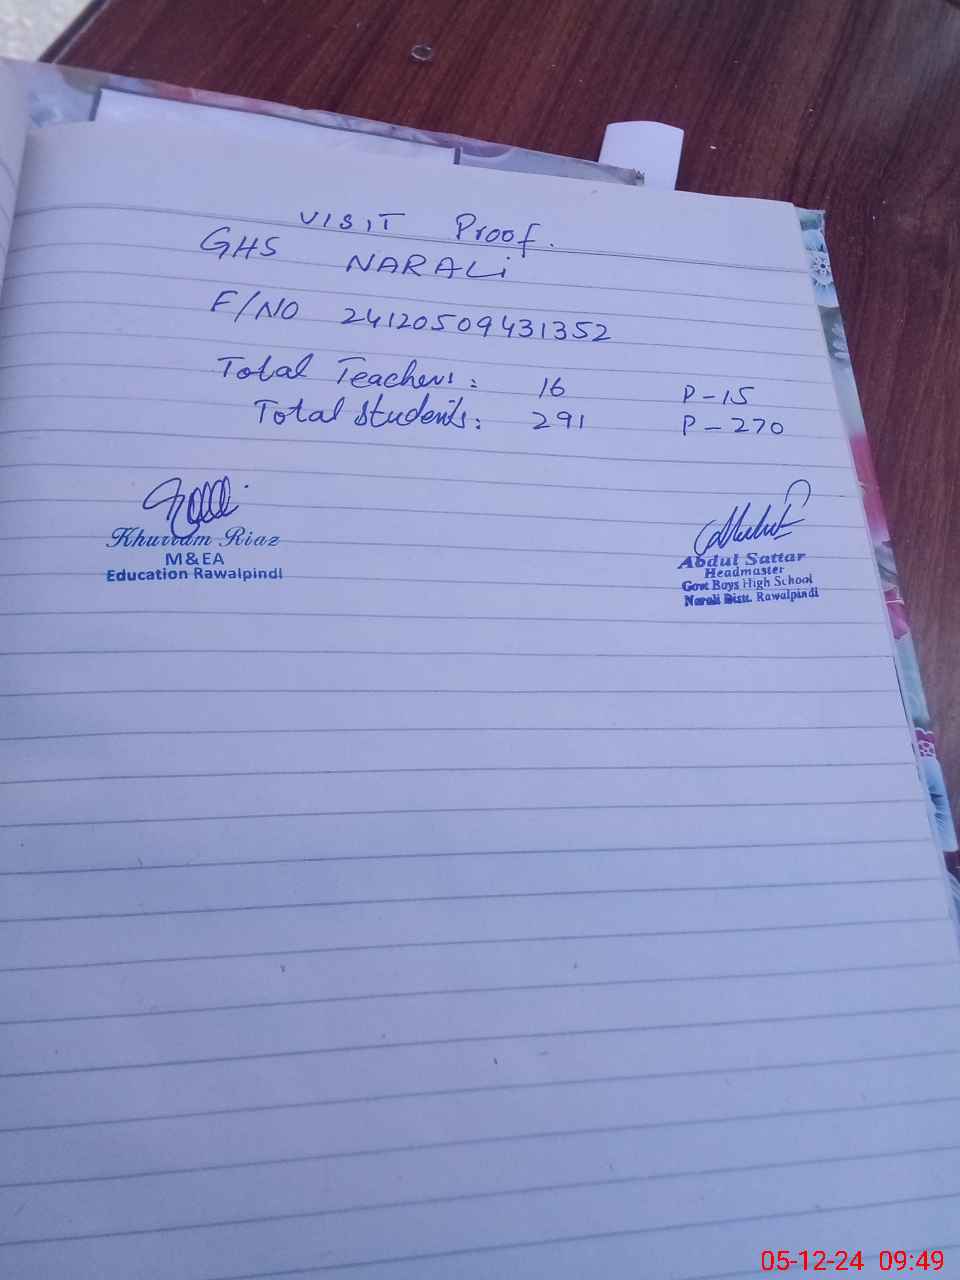 VISIT Proof.
GHS NARALi
F/NO 24120509431352
Total Teachers: 16 P-15
Total students: 291 P-270
Khurram Riaz
M&EA
Education Rawalpindi
Abdul Sattar
Headmaster
Govt Boys High School
Narali Distt. Rawalpindi
05-12-24 09:49